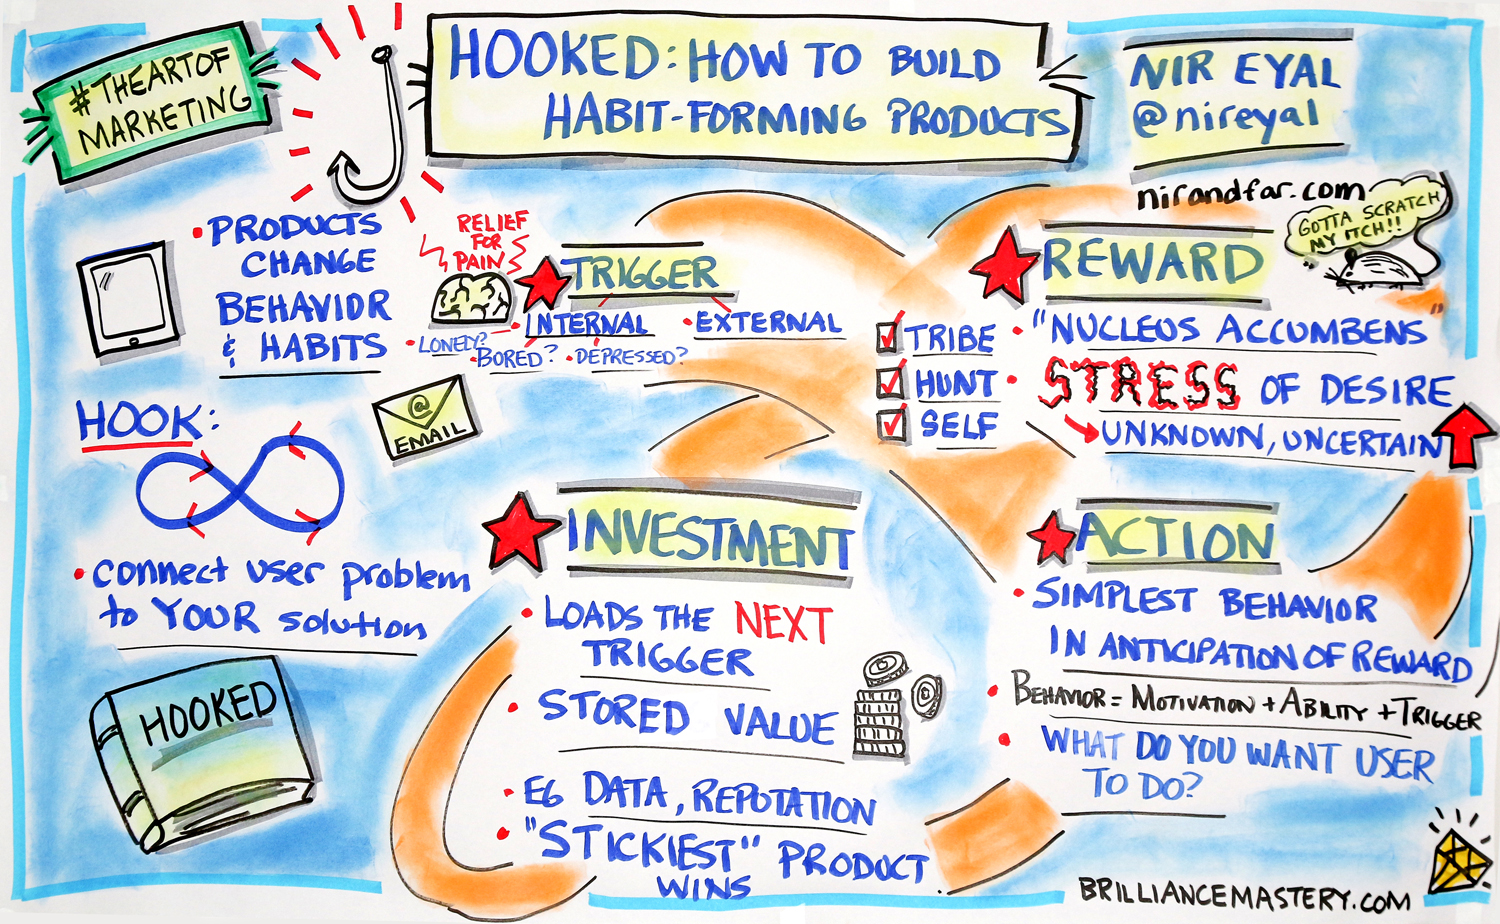 #THEARTOF
MARKETING
HOOKED: HOW TO BUILD
HABIT-FORMING PRODUCTS
NIR EYAL
@nireyal
nirandfar.com
GOTTA SCRATCH
MY ITCH!!
• PRODUCTS
CHANGE
BEHAVIOR
& HABITS
HOOK:
• connect user problem
to YOUR solution
HOOKED
RELIEF
FOR
PAIN
TRIGGER
• INTERNAL
• EXTERNAL
• LONELY?
BORED?
• DEPRESSED?
@
EMAIL
REWARD
TRIBE
HUNT
SELF
• "NUCLEUS ACCUMBENS"
• STRESS OF DESIRE
UNKNOWN, UNCERTAIN
INVESTMENT
• LOADS THE NEXT
TRIGGER
• STORED VALUE
• EG DATA, REPUTATION
• "STICKIEST" PRODUCT
WINS
ACTION
• SIMPLEST BEHAVIOR
IN ANTICIPATION OF REWARD
• BEHAVIOR = MOTIVATION + ABILITY + TRIGGER
• WHAT DO YOU WANT USER
TO DO?
BRILLIANCEMASTERY.COM